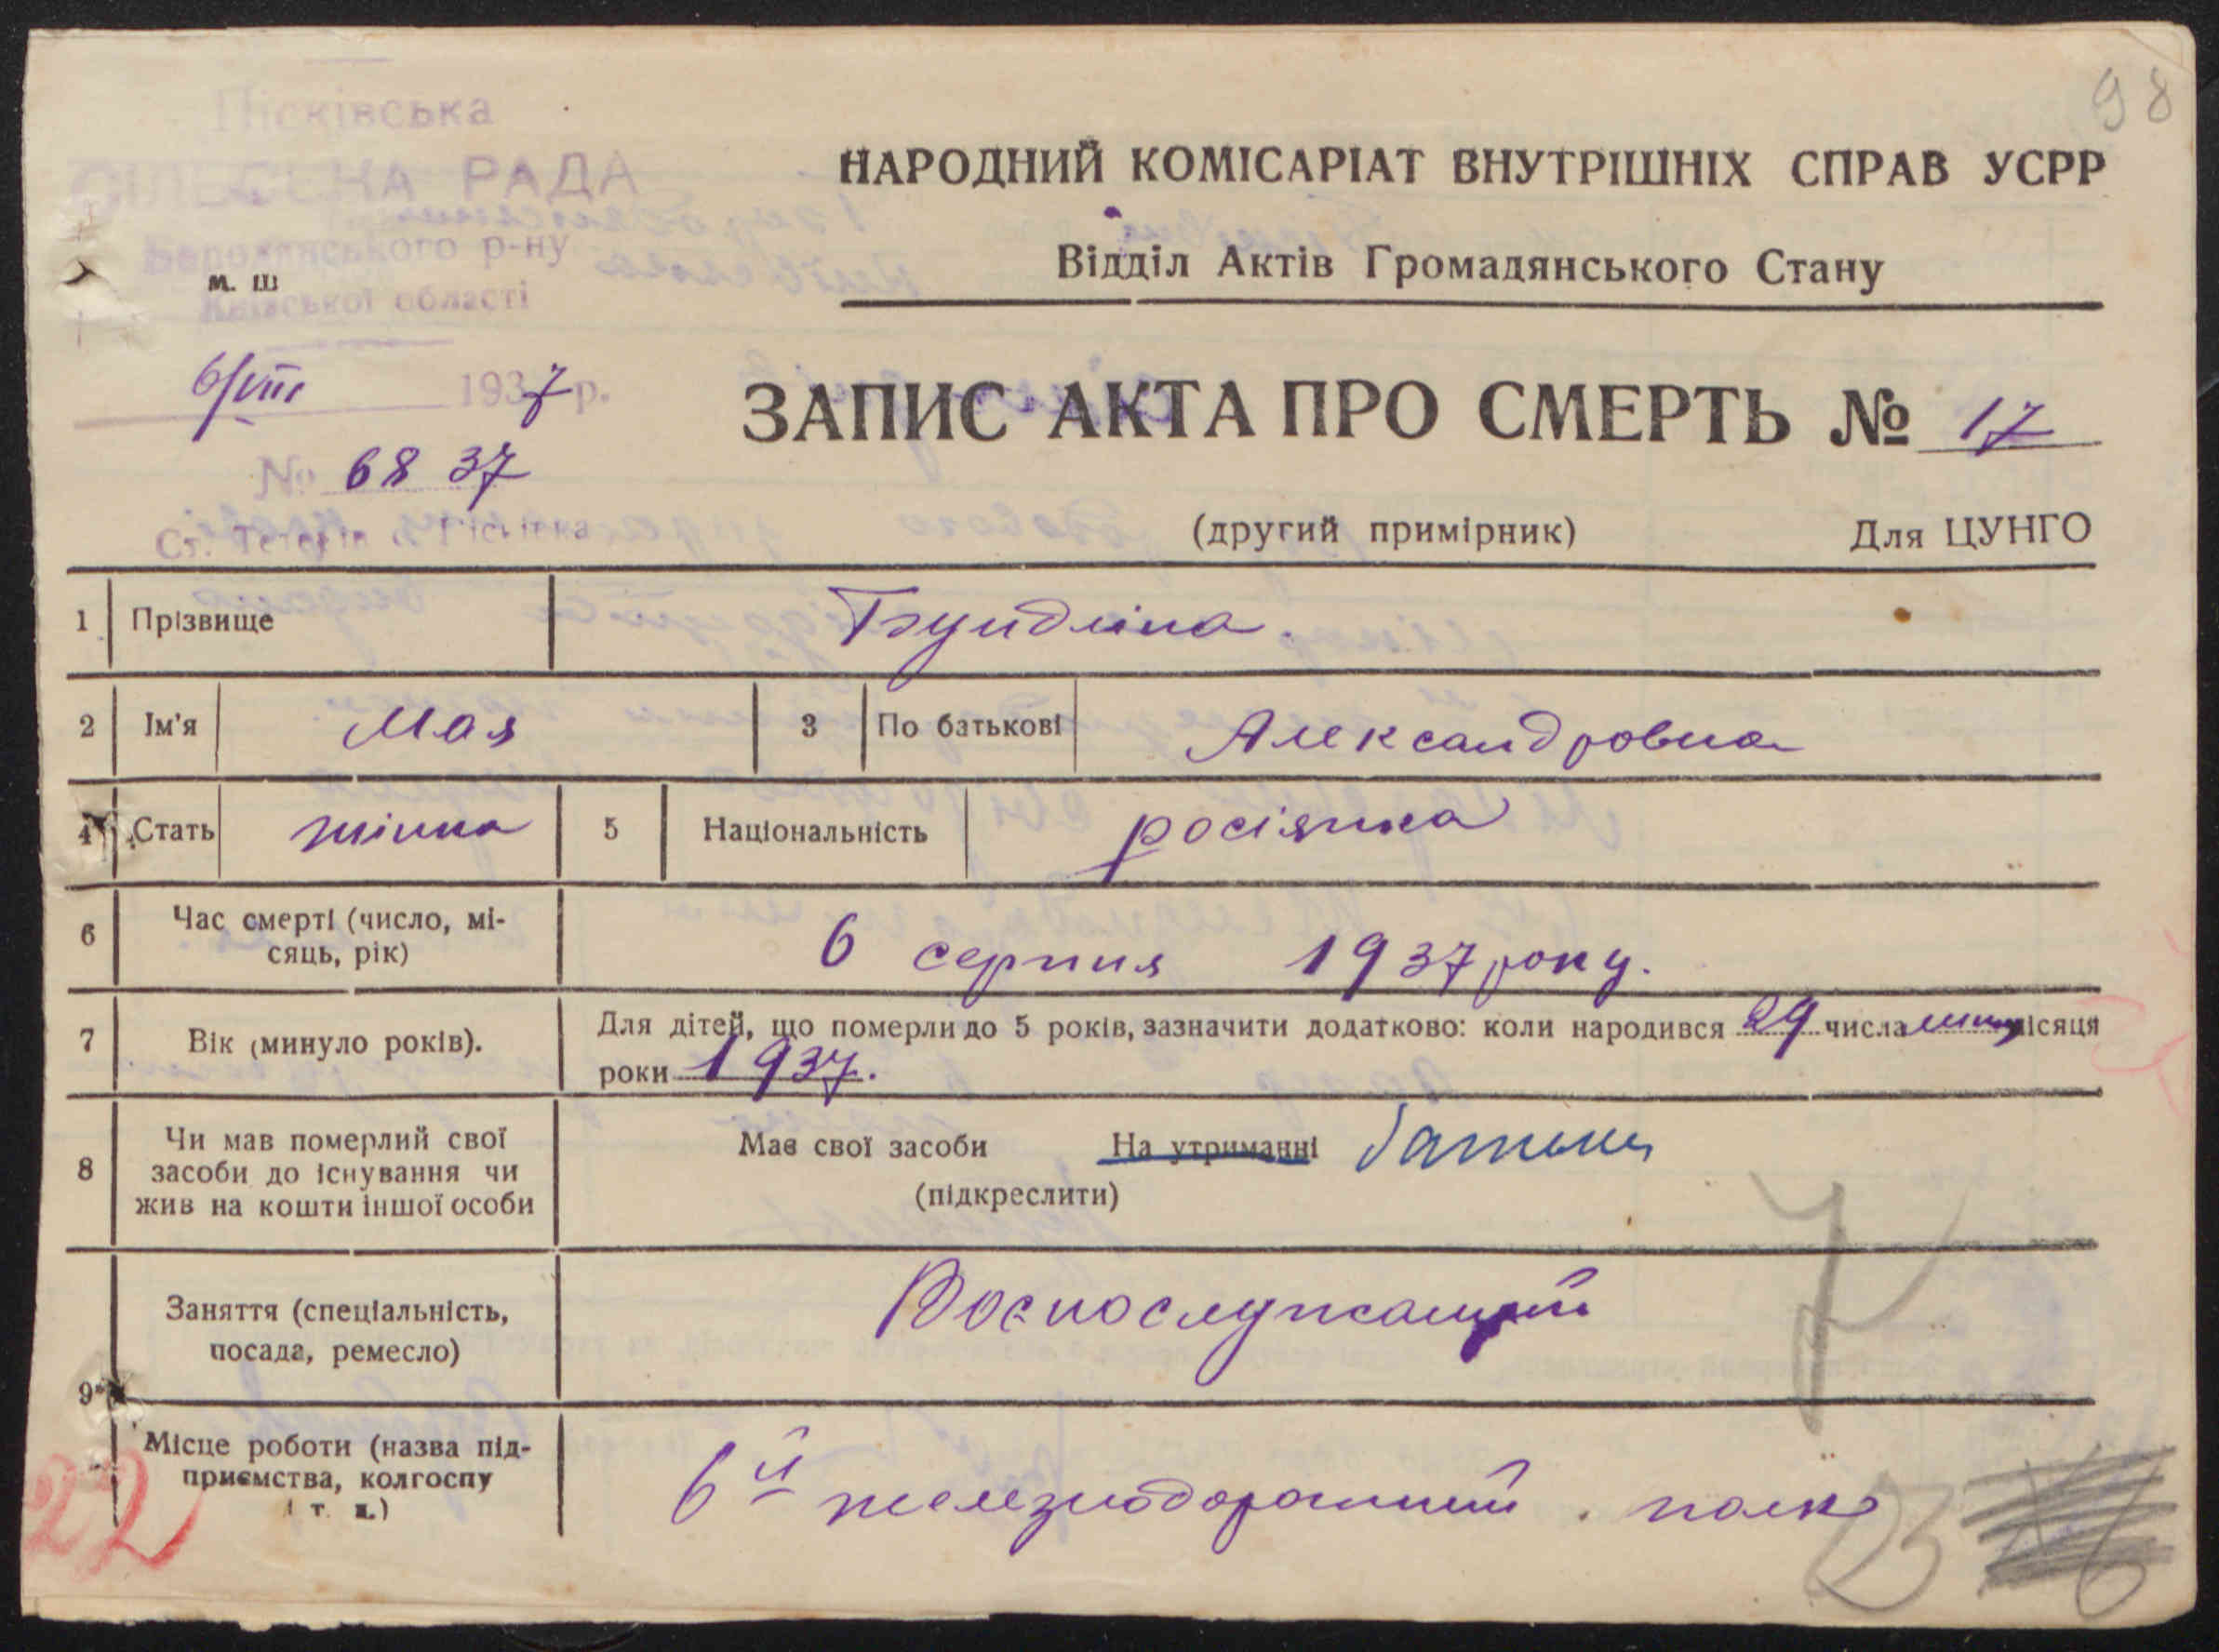 98
Пісківська
СІЛЬСЬКА РАДА
Бородянського р-ну
м. ш
Київської області
6/VIII 1937 р.
№ 68 37
Ст. Тетерів с. Пісківка
НАРОДНИЙ КОМІСАРІАТ ВНУТРІШНІХ СПРАВ УСРР
Відділ Актів Громадянського Стану
ЗАПИС АКТА ПРО СМЕРТЬ № 17
(другий примірник) Для ЦУНГО
1 Прізвище
2 Ім'я Мая 3 По батькові Александровна
4 Стать жінка 5 Національність росіянка
6 Час смерті (число, мі-
сяць, рік) 6 серпня 1937 року.
7 Вік (минуло років). Для дітей, що померли до 5 років, зазначити додатково: коли народився 29 числа місяця
роки 1937.
8 Чи мав померлий свої
засоби до існування чи
жив на кошти іншої особи
Має свої засоби На утриманні батька
(підкреслити)
9 Заняття (спеціальність,
посада, ремесло) Военослужащий
Місце роботи (назва під-
приємства, колгоспу
і т. п.) 6й железнодорожний полк
7
22
23